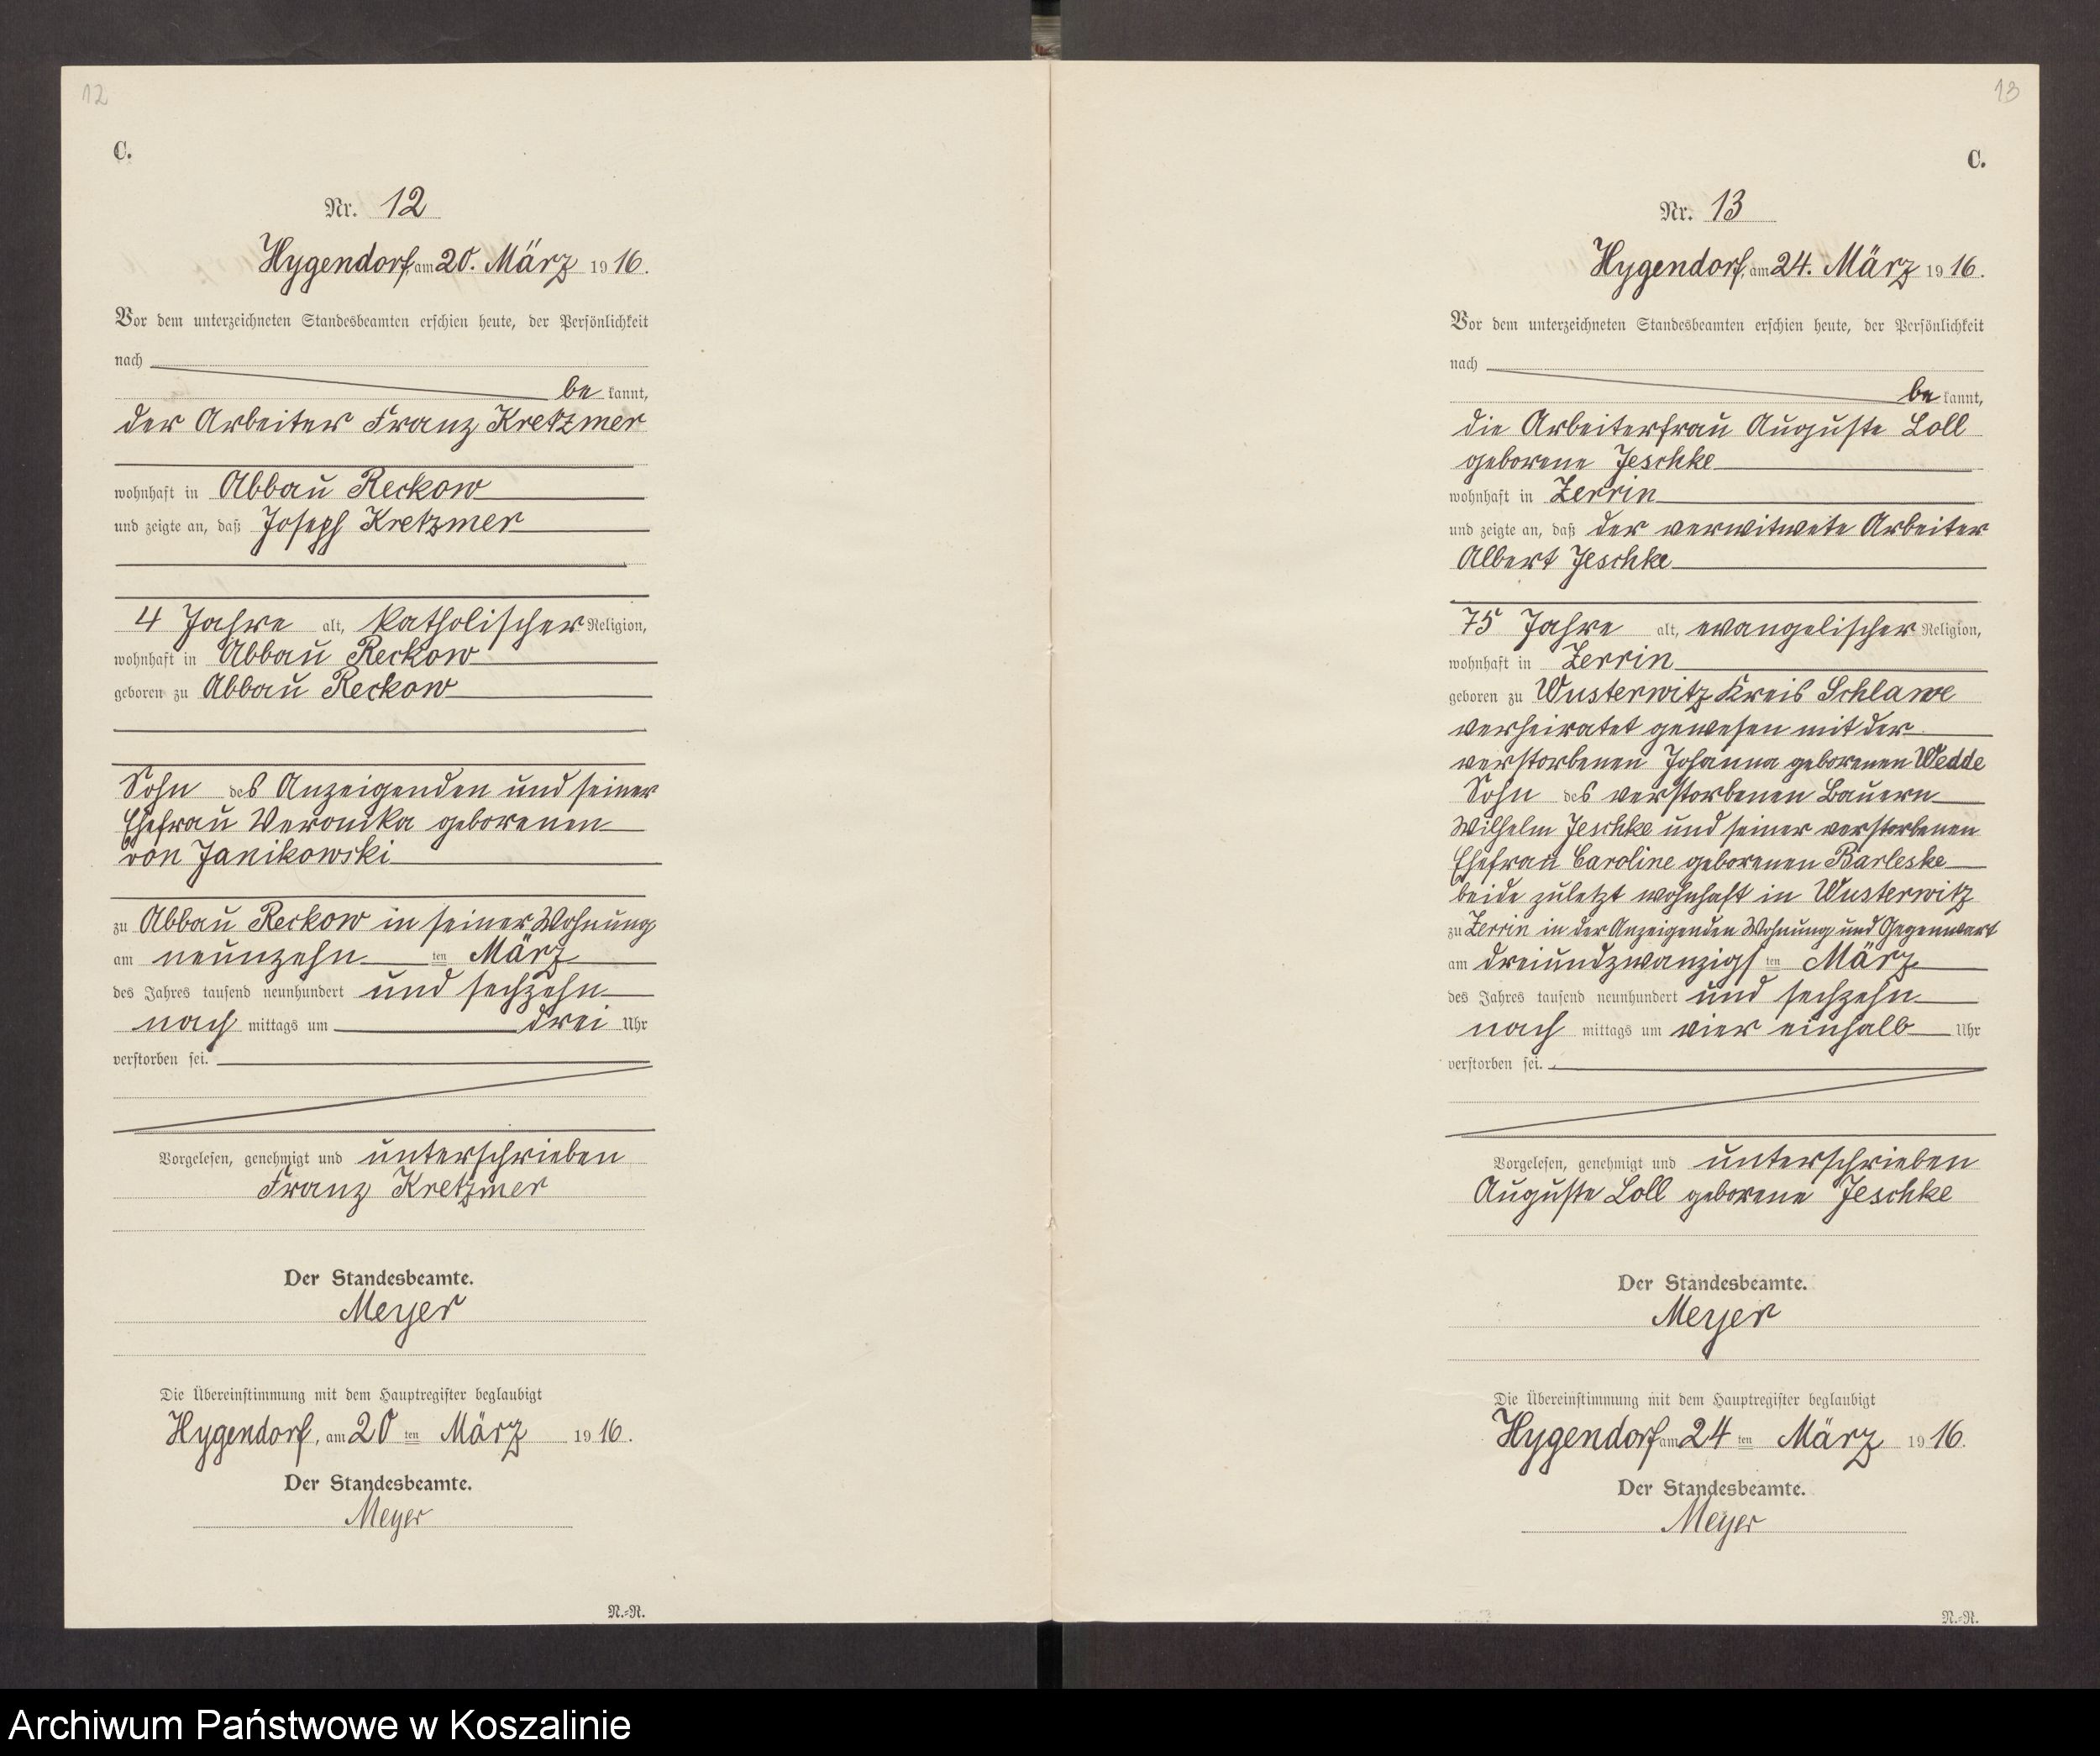 12
C.
Nr. 12
Hygendorf, am 20. März 1916.
Vor dem unterzeichneten Standesbeamten erschien heute, der Persönlichkeit
nach
be kannt,
der Arbeiter Franz Kretzmer
wohnhaft in Abbau Reckow
und zeigte an, daß Joseph Kretzmer
4 Jahre alt, katholischer Religion,
wohnhaft in Abbau Reckow
geboren zu Abbau Reckow
Sohn des Anzeigenden und seiner
Ehefrau Veronika geborenen
von Janikowski
zu Abbau Reckow in seiner Wohnung
am neunzehn ten März
des Jahres tausend neunhundert und sechzehn
nach mittags um drei Uhr
verstorben sei.
Vorgelesen, genehmigt und unterschrieben
Franz Kretzmer
Der Standesbeamte.
Meyer
Die Übereinstimmung mit dem Hauptregister beglaubigt
Hygendorf, am 20 ten März 1916.
Der Standesbeamte.
Meyer
N.=N.
13
C.
Nr. 13
Hygendorf, am 24. März 1916.
Vor dem unterzeichneten Standesbeamten erschien heute, der Persönlichkeit
nach
be kannt,
die Arbeiterfrau Auguste Loll
geborene Jeschke
wohnhaft in Zerrin
und zeigte an, daß der verwitwete Arbeiter
Albert Jeschke
75 Jahre alt, evangelischer Religion,
wohnhaft in Zerrin
geboren zu Wusterwitz Kreis Schlawe
verheiratet gewesen mit der
verstorbenen Johanna geborenen Wedde
Sohn des verstorbenen Bauern
Wilhelm Jeschke und seiner verstorbenen
Ehefrau Caroline geborenen Barleske
beide zuletzt wohnhaft in Wusterwitz
zu Zerrin in der Anzeigenden Wohnung und Gegenwart
am dreiundzwanzigs ten März
des Jahres tausend neunhundert und sechzehn
nach mittags um vier einhalb Uhr
verstorben sei.
Vorgelesen, genehmigt und unterschrieben
Auguste Loll geborene Jeschke
Der Standesbeamte.
Meyer
Die Übereinstimmung mit dem Hauptregister beglaubigt
Hygendorf am 24 ten März 1916.
Der Standesbeamte.
Meyer
N.=N.
Archiwum Państwowe w Koszalinie